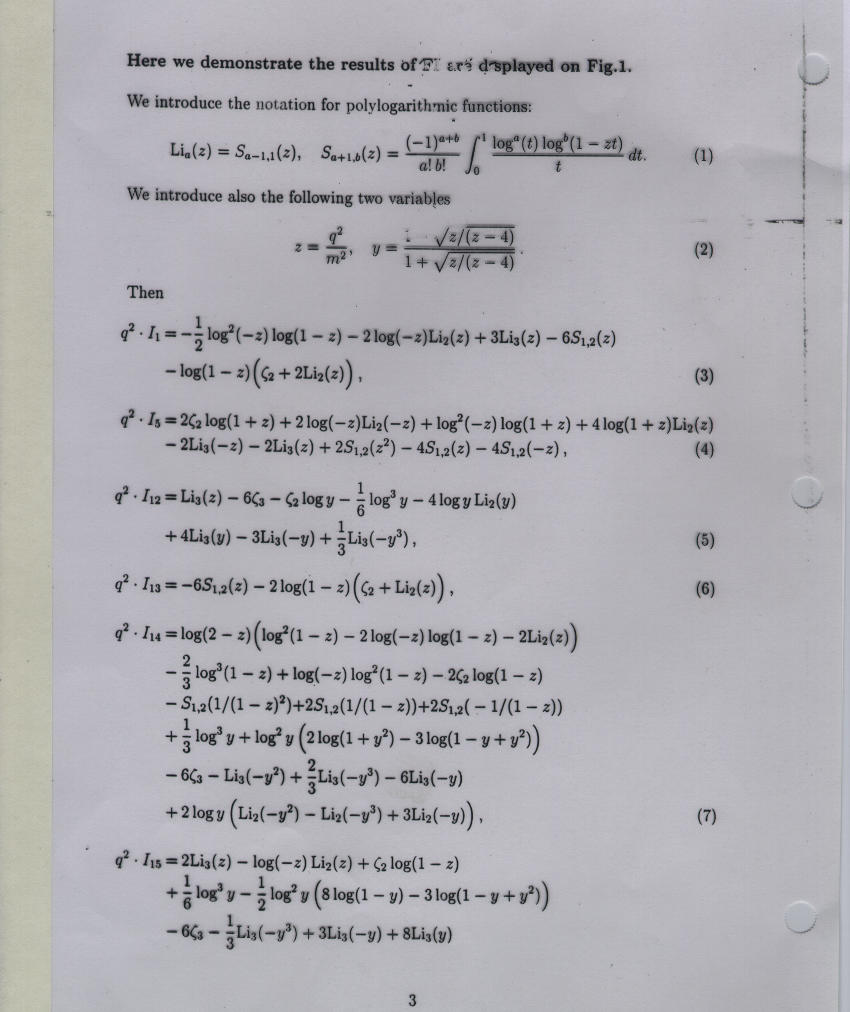 Here we demonstrate the results of displayed on Fig.1.
We introduce the notation for polylogarithmic functions:
Li_a(z) = S_{a−1,1}(z), S_{a+1,b}(z) = \frac{(−1)^{a+b}}{a! b!} ∫_0^1 \frac{log^a(t) log^b(1 − zt)}{t} dt. (1)
We introduce also the following two variables
z = \frac{q^2}{m^2}, y = \frac{1 \sqrt{z/(z − 4)}}{1 + \sqrt{z/(z − 4)}}. (2)
Then
q^2 · I_1 = −\frac{1}{2} log^2(−z) log(1 − z) − 2 log(−z)Li_2(z) + 3Li_3(z) − 6S_{1,2}(z)
− log(1 − z)(ζ_2 + 2Li_2(z)), (3)
q^2 · I_5 = 2ζ_2 log(1 + z) + 2 log(−z)Li_2(−z) + log^2(−z) log(1 + z) + 4 log(1 + z)Li_2(z)
− 2Li_3(−z) − 2Li_3(z) + 2S_{1,2}(z^2) − 4S_{1,2}(z) − 4S_{1,2}(−z), (4)
q^2 · I_{12} = Li_3(z) − 6ζ_3 − ζ_2 log y − \frac{1}{6} log^3 y − 4 log y Li_2(y)
+ 4Li_3(y) − 3Li_3(−y) + \frac{1}{3}Li_3(−y^3), (5)
q^2 · I_{13} = −6S_{1,2}(z) − 2 log(1 − z)(ζ_2 + Li_2(z)), (6)
q^2 · I_{14} = log(2 − z)(log^2(1 − z) − 2 log(−z) log(1 − z) − 2Li_2(z))
− \frac{2}{3} log^3(1 − z) + log(−z) log^2(1 − z) − 2ζ_2 log(1 − z)
− S_{1,2}(1/(1 − z)^2)+2S_{1,2}(1/(1 − z))+2S_{1,2}( − 1/(1 − z))
+ \frac{1}{3} log^3 y + log^2 y (2 log(1 + y^2) − 3 log(1 − y + y^2))
− 6ζ_3 − Li_3(−y^2) + \frac{2}{3}Li_3(−y^3) − 6Li_3(−y)
+ 2 log y (Li_2(−y^2) − Li_2(−y^3) + 3Li_2(−y)), (7)
q^2 · I_{15} = 2Li_3(z) − log(−z) Li_2(z) + ζ_2 log(1 − z)
+ \frac{1}{6} log^3 y − \frac{1}{2} log^2 y (8 log(1 − y) − 3 log(1 − y + y^2))
− 6ζ_3 − \frac{1}{3}Li_3(−y^3) + 3Li_3(−y) + 8Li_3(y)
3